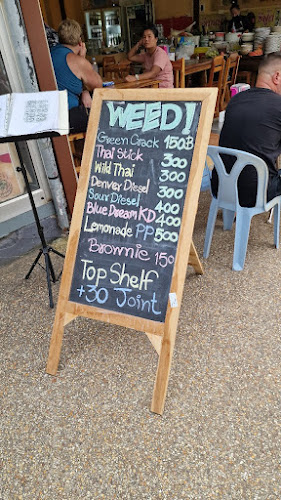 WEED!
Green Crack 150B
Thai Stick 300
Wild Thai 300
Denver Diesel 300
Sour Diesel 400
Blue Dream KD 400
Lemonade PP 500
Brownie 150
Top Shelf
+30 Joint